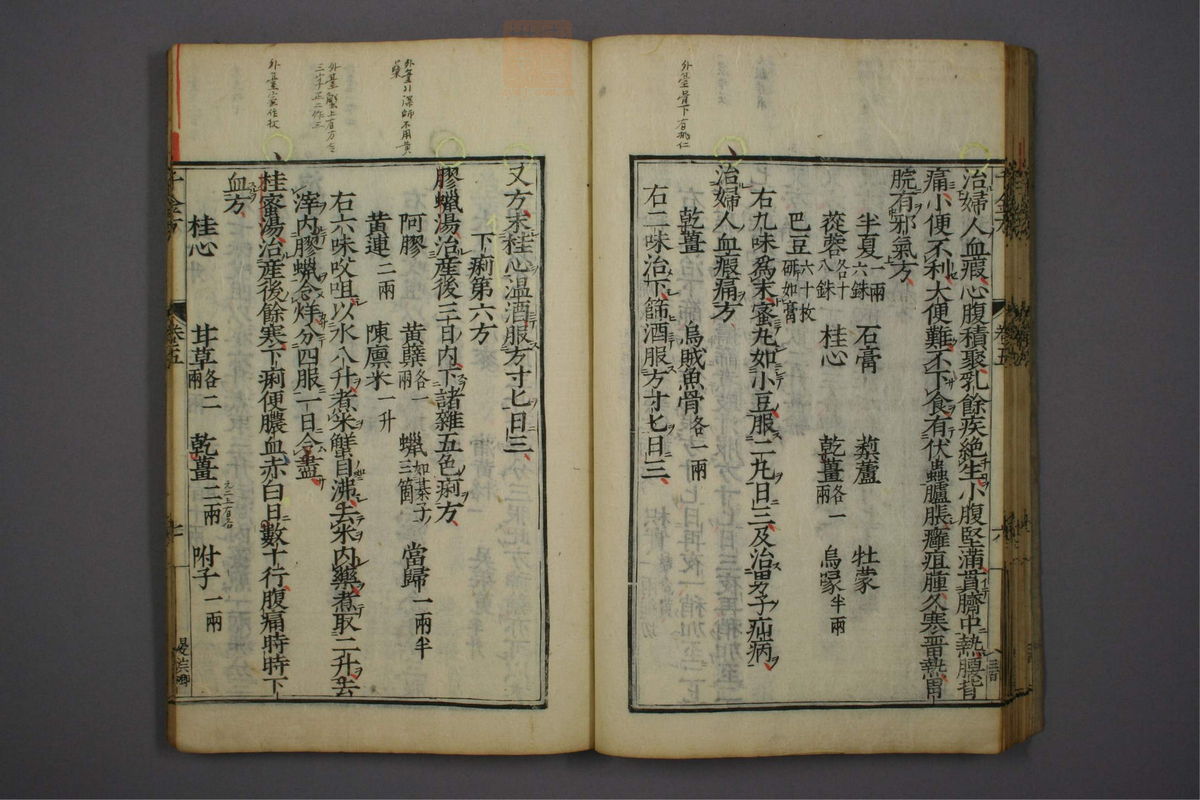 外臺骨下有桃仁
治婦人血瘕心腹積聚乳餘疾絶生小腹堅滿貫臍中熱腰背
痛小便不利大便難不下食有伏蟲臚脹癰疽腫久寒晋熱胃
脘有邪氣方
半夏一兩六銖 石膏 藜蘆 牡蒙
蓯蓉各十八銖 桂心 乾薑各一兩 烏喙半兩
巴豆六十枚硏如膏
右九味爲末蜜丸如小豆服二丸日三及治男子疝病
治婦人血瘕痛方
乾薑 烏賊魚骨各一兩
右二味治下篩酒服方寸匕日三
外臺引深師不用黄蘗
外臺蠟上有方寸三字正二作三
外臺蜜作枚
又方末桂心温酒服方寸匕日三
下痢第六方
膠蠟湯治産後三日内下諸雜五色痢方
阿膠 黄蘗各一兩 蠟如棊子三箇 當歸一兩半
黄連二兩 陳廩米一升
右六味㕮咀以水八升煮米蟹目沸去米内藥煮取二升去
滓内膠蠟令烊分四服一日令盡
桂蜜湯治産後餘寒下痢便膿血赤白日數十行腹痛時時下
血方
桂心 甘草各二兩 乾薑二兩 附子一兩
千金方
卷五
七
六